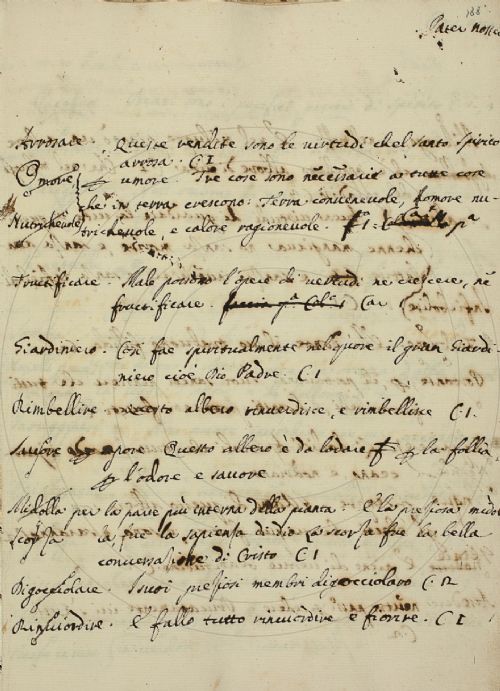 188
Pater noste
Arrosare. Queste verdite sono le virtudi chel santo spirito
arrosa. C 1
Omore umore. Tre cose sono necessarie a tutte cose
che in terra crescono: Terra convenevole, homore nu-
Nutrichevole trichevole, e calore ragionevole.
Fructificare. Male possono l'opere di vertudi ne crescere, ne
fructificare. Car 1
Giardiniero. Così fae spiritualmente nel quore il gran Giardi-
niero cioè Dio Padre. C. 1
Rimbellire questo albero rinverdisce, e rimbellisce C. 1.
Savore Questo albero è da lodare la follia
l'odore e savore
Midolla per la parte più interna della pianta. E la presiosa midol
Scorsa la, fue la sapiensa di dio La scorsa fue la bella
conversassione di Cristo C 1
Digocciolare. I suoi presiosi membri digocciolaro C. 12
Rinverdire. E fallo tutto rinverdire e fiorire. C 1